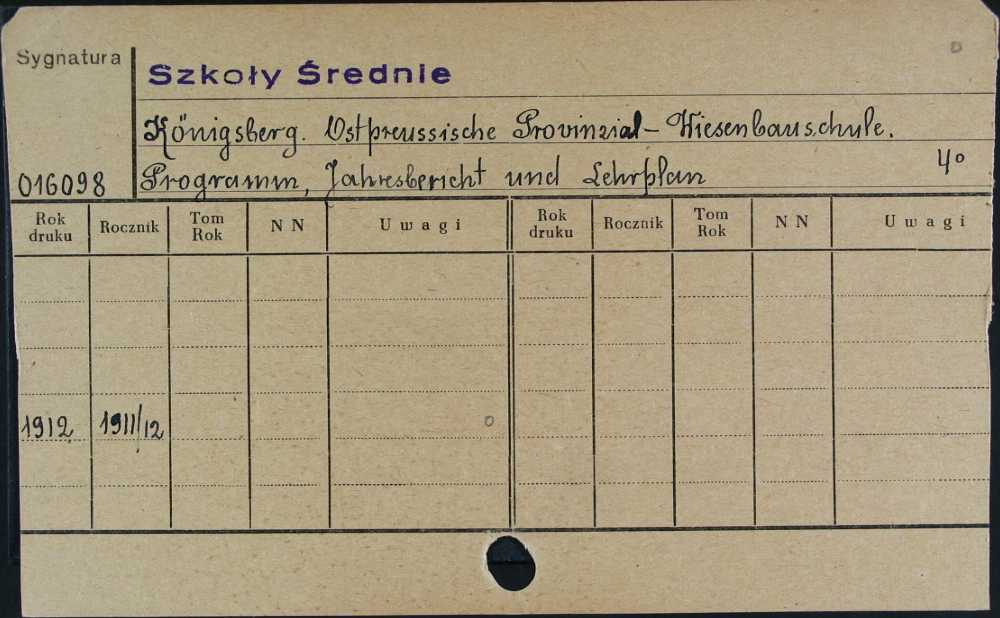 Sygnatura
Szkoły Średnie
Königsberg. Ostpreussische Provinzial-Wiesenbauschule.
016098 Programm, Jahresbericht und Lehrplan 4º
Rok druku Rocznik Tom Rok N N Uwagi Rok druku Rocznik Tom Rok N N Uwagi
1912 1911/12 0